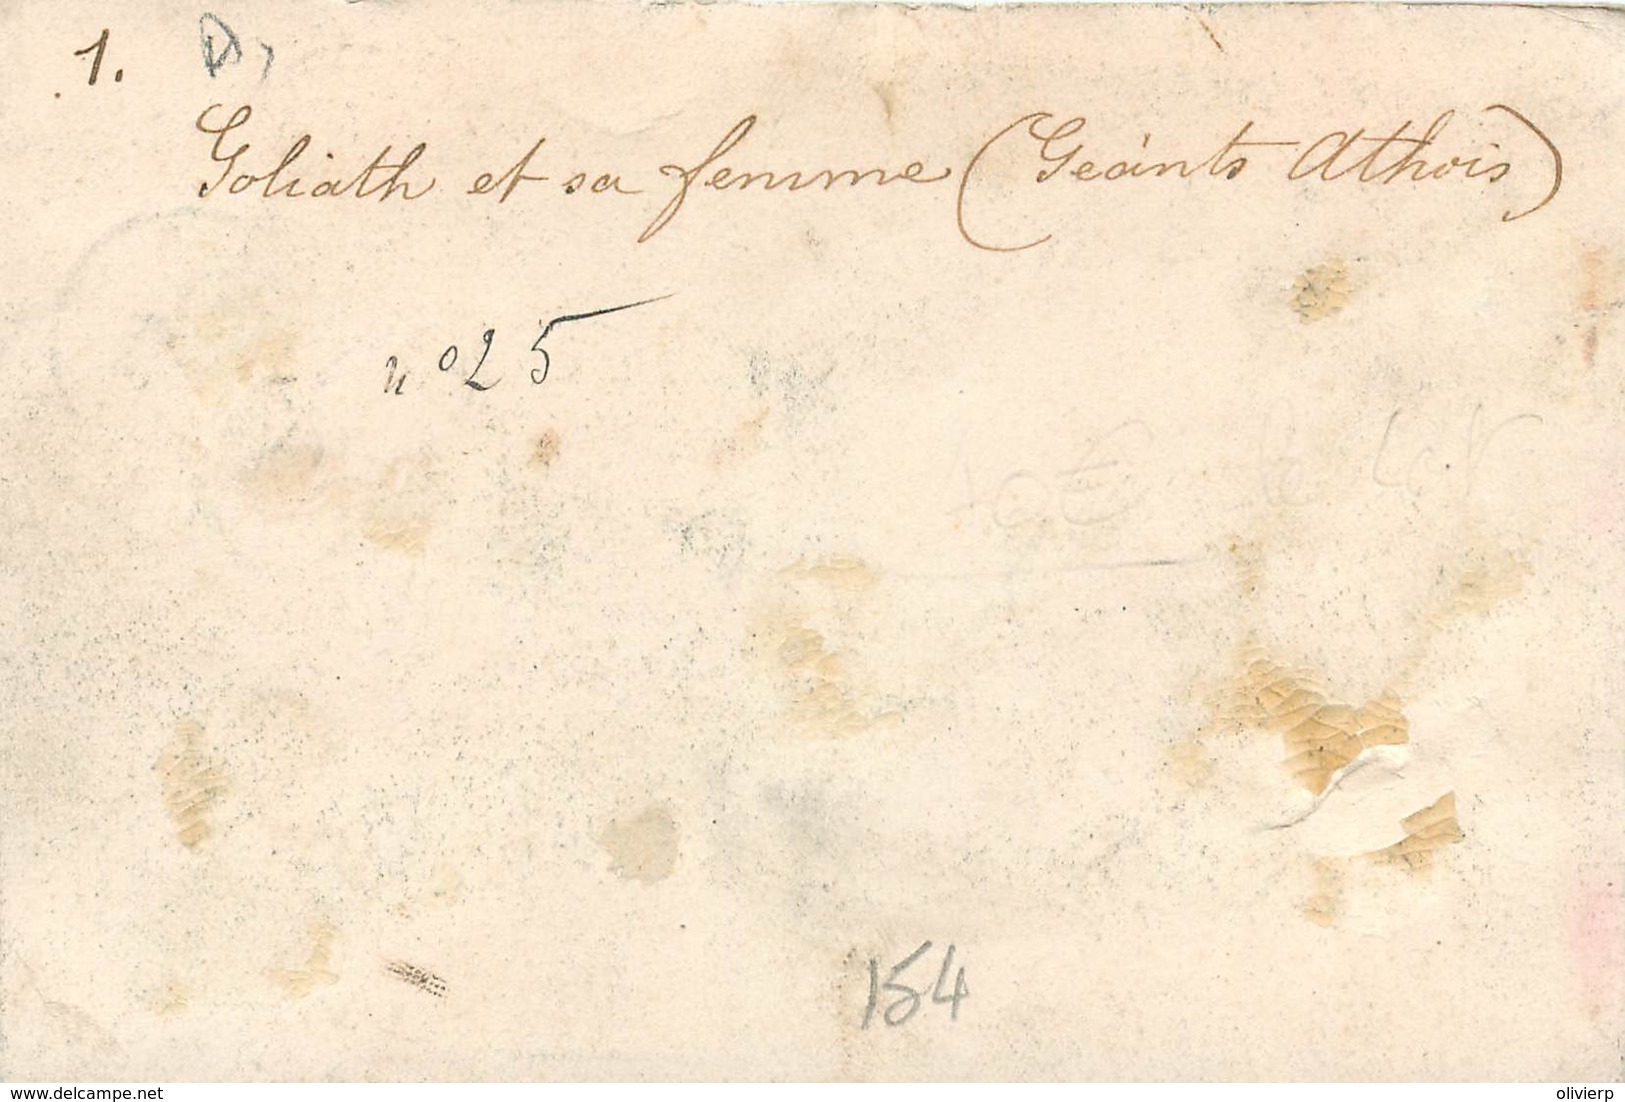 1. D,
Goliath et sa femme (Geánts Athois)
n° 25
10€ le lot
154
delcampe.net
olivierp